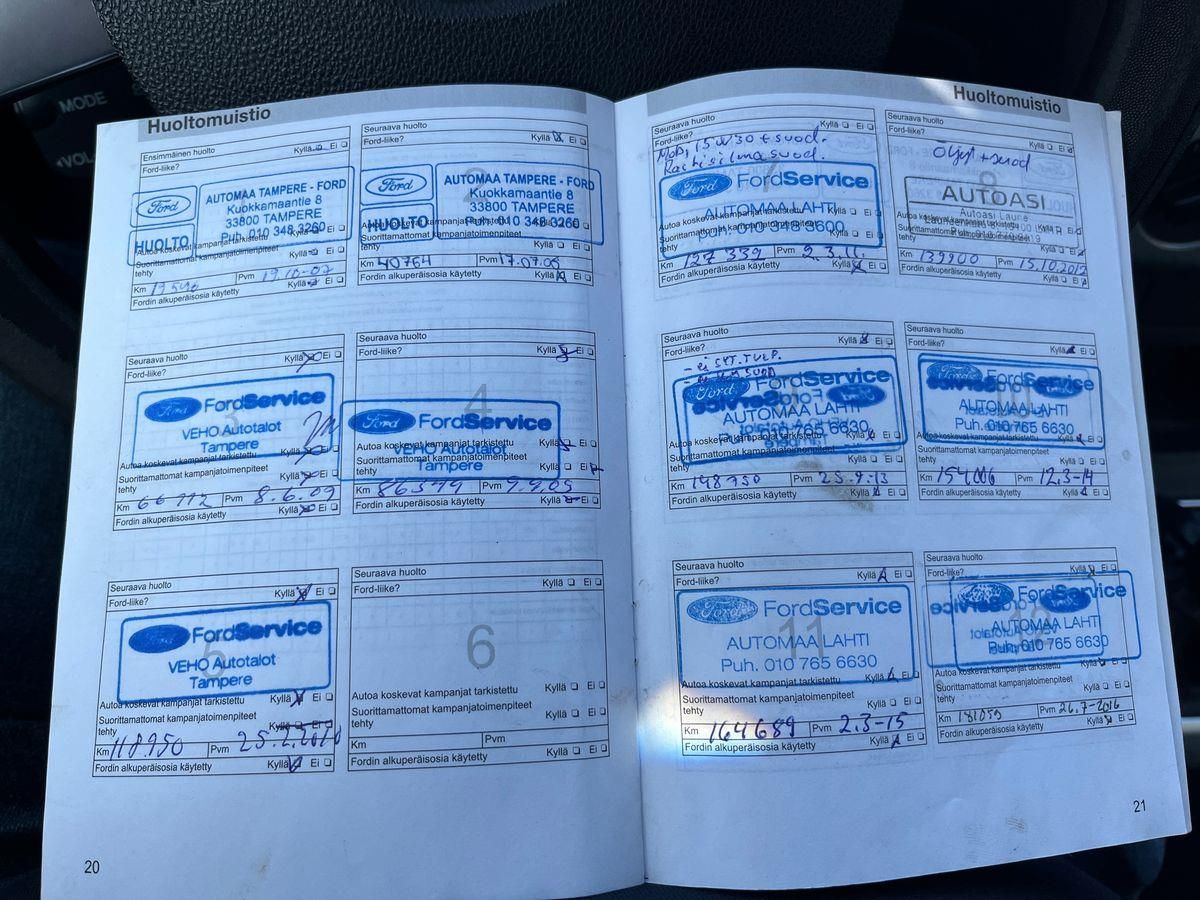 MODE
VOL
Huoltomuistio
Ensimmäinen huolto
Ford-liike? Kyllä Ei
Ford
HUOLTO
AUTOMAA TAMPERE - FORD
Kuokkamaantie 8
33800 TAMPERE
Puh. 010 348 3260
Autoa koskevat kampanjat tarkistettu
Suorittamattomat kampanjatoimenpiteet
tehty Kyllä Ei
Km 19546 Pvm 19.10-07
Fordin alkuperäisosia käytetty Kyllä Ei
Seuraava huolto
Ford-liike? Kyllä Ei
2
Ford
HUOLTO
AUTOMAA TAMPERE - FORD
Kuokkamaantie 8
33800 TAMPERE
Puh. 010 348 3260
Autoa koskevat kampanjat tarkistettu
Suorittamattomat kampanjatoimenpiteet
tehty Kyllä Ei
Km 40764 Pvm 17.07.08
Fordin alkuperäisosia käytetty Kyllä Ei
Seuraava huolto
Ford-liike? Kyllä Ei
3
Ford FordService
VEHO Autotalot
Tampere
Autoa koskevat kampanjat tarkistettu Kyllä Ei
Suorittamattomat kampanjatoimenpiteet
tehty Kyllä Ei
Km 66772 Pvm 8.6.09
Fordin alkuperäisosia käytetty Kyllä Ei
Seuraava huolto
Ford-liike? Kyllä Ei
4
Ford FordService
VEHO Autotalot
Tampere
Autoa koskevat kampanjat tarkistettu Kyllä Ei
Suorittamattomat kampanjatoimenpiteet
tehty Kyllä Ei
Km 86579 Pvm 9.9.09
Fordin alkuperäisosia käytetty Kyllä Ei
Seuraava huolto
Ford-liike? Kyllä Ei
5
FordService
VEHO Autotalot
Tampere
Autoa koskevat kampanjat tarkistettu Kyllä Ei
Suorittamattomat kampanjatoimenpiteet
tehty Kyllä Ei
Km 118950 Pvm 25.2.2010
Fordin alkuperäisosia käytetty Kyllä Ei
Seuraava huolto
Ford-liike? Kyllä Ei
6
Autoa koskevat kampanjat tarkistettu Kyllä Ei
Suorittamattomat kampanjatoimenpiteet
tehty Kyllä Ei
Km Pvm
Fordin alkuperäisosia käytetty Kyllä Ei
20
Huoltomuistio
Seuraava huolto
Ford-liike? Kyllä Ei
7
Ford FordService
AUTOMAA LAHTI
Autoa koskevat kampanjat tarkistettu Kyllä Ei
Suorittamattomat kampanjatoimenpiteet
tehty Kyllä Ei
Km 127 339 Pvm 2.3.11.
Fordin alkuperäisosia käytetty Kyllä Ei
Seuraava huolto
Ford-liike? Kyllä Ei
Öljyt + suod
8
AUTOASI
Autoasi Laune
Autoa koskevat kampanjat tarkistettu Kyllä Ei
Suorittamattomat kampanjatoimenpiteet
tehty Kyllä Ei
Km 139900 Pvm 15.10.2012
Fordin alkuperäisosia käytetty Kyllä Ei
Seuraava huolto
Ford-liike? Kyllä Ei
Ford FordService
AUTOMAA LAHTI
Puh. 010 765 6630
Autoa koskevat kampanjat tarkistettu Kyllä Ei
Suorittamattomat kampanjatoimenpiteet
tehty Kyllä Ei
Km 148750 Pvm 25.9.13
Fordin alkuperäisosia käytetty Kyllä Ei
Seuraava huolto
Ford-liike? Kyllä Ei
10
Ford FordService
AUTOMAA LAHTI
Puh. 010 765 6630
Autoa koskevat kampanjat tarkistettu Kyllä Ei
Suorittamattomat kampanjatoimenpiteet
tehty Kyllä Ei
Km 154006 Pvm 12.3-14
Fordin alkuperäisosia käytetty Kyllä Ei
Seuraava huolto
Ford-liike? Kyllä Ei
11
Ford FordService
AUTOMAA LAHTI
Puh. 010 765 6630
Autoa koskevat kampanjat tarkistettu Kyllä Ei
Suorittamattomat kampanjatoimenpiteet
tehty Kyllä Ei
Km 164689 Pvm 2.3-15
Fordin alkuperäisosia käytetty Kyllä Ei
Seuraava huolto
Ford-liike? Kyllä Ei
12
Ford FordService
AUTOMAA LAHTI
Puh. 010 765 6630
Autoa koskevat kampanjat tarkistettu Kyllä Ei
Suorittamattomat kampanjatoimenpiteet
tehty Kyllä Ei
Km 181059 Pvm 26.7-2016
Fordin alkuperäisosia käytetty Kyllä Ei
21